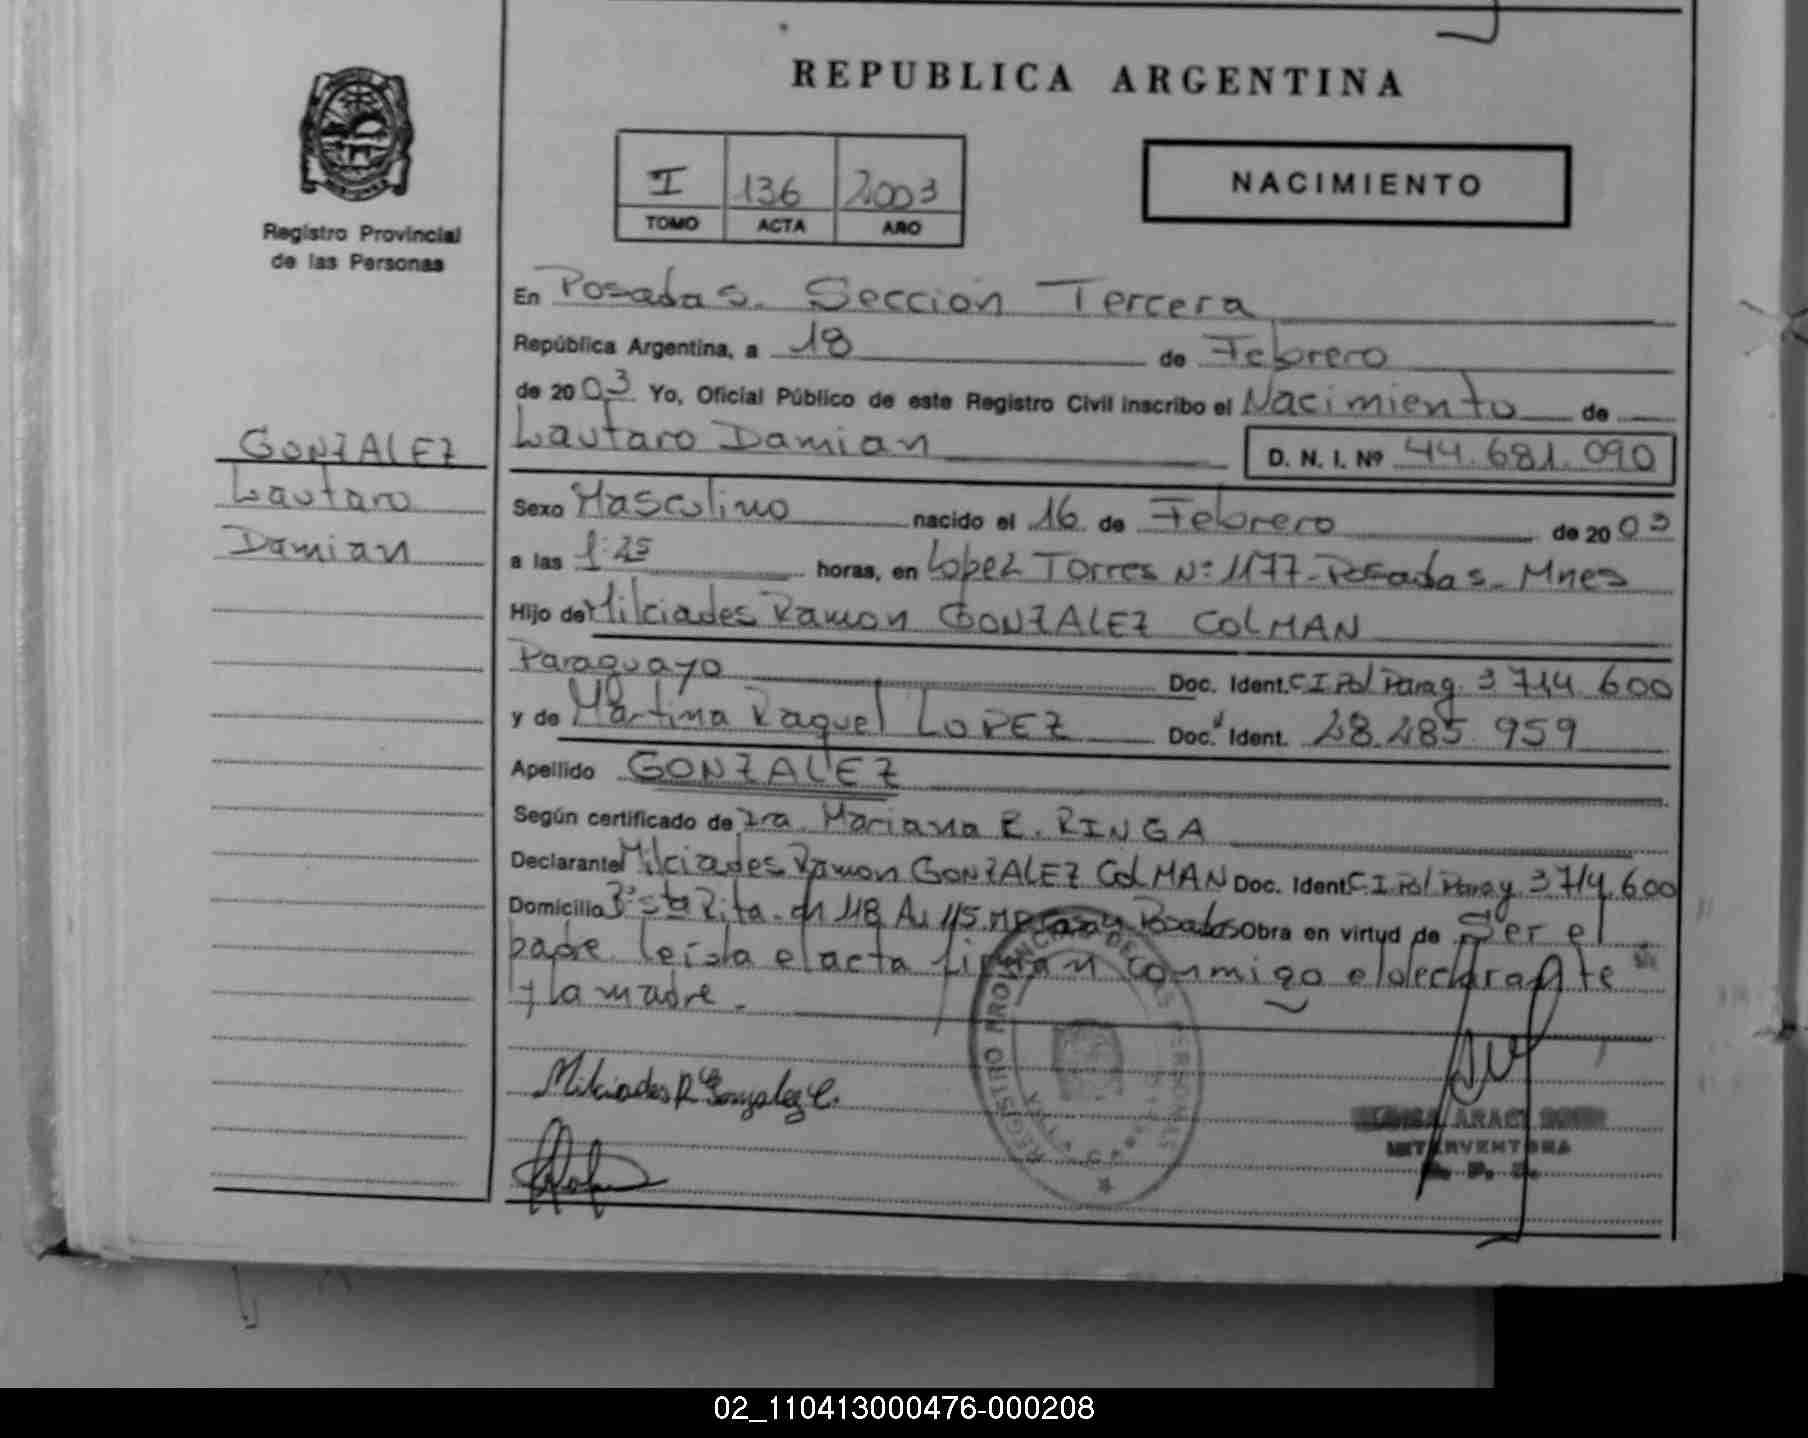 REPUBLICA ARGENTINA
I 136 2003
TOMO ACTA AÑO
NACIMIENTO
Registro Provincial
de las Personas
En Posadas. Sección Tercera
República Argentina, a 18 de Febrero
de 2003 Yo, Oficial Público de este Registro Civil inscribo el Nacimiento de
Lautaro Damian D. N. I. Nº 44.681.090
GONZALEZ
Lautaro
Damian
Sexo Masculino nacido el 16 de Febrero de 2003
a las 1:25 horas, en Lopez Torres Nº 1177-Posadas-Mnes
Hijo de Milciades Ramon GONZALEZ COLMAN
Paraguayo Doc. Ident. C I Pol Parag. 3 714 600
y de Martina Raquel LOPEZ Doc. Ident. 28.285.959
Apellido GONZALEZ
Según certificado de Dra. Mariana E. RINGA
Declarante Milciades Ramon GONZALEZ COLMAN Doc. Ident. C.I. Pol Parag. 3 714.600
Domicilio Bº Sta Rita. ch 118 Av 115 Posadas Obra en virtud de Ser el
padre. leída el acta firman conmigo el declarante
y la madre.
Milciades R Gonzalez C.
REGISTRO PROVINCIAL DE LAS PERSONAS
ARACI
INTERVENTORA
02_110413000476-000208